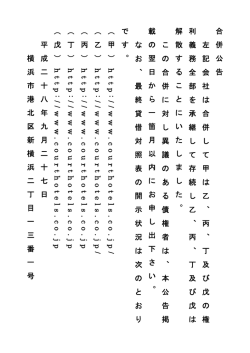 合併公告
左記会社は合併して甲は乙、丙、丁及び戊の権
利義務全部を承継して存続し乙、丙、丁及び戊は
解散することにいたしました。
この合併に対し異議のある債権者は、本公告掲
載の翌日から一箇月以内にお申し出下さい。
なお、最終貸借対照表の開示状況は次のとおり
です。
（甲）http://www.courthotels.co.jp/
（乙）http://www.courthotels.co.jp/
（丙）http://www.courthotels.co.jp
（丁）http://www.courthotels.co.jp
（戊）http://www.courthotels.co.jp
平成二十八年九月二十七日
横浜市港北区新横浜二丁目一三番一号